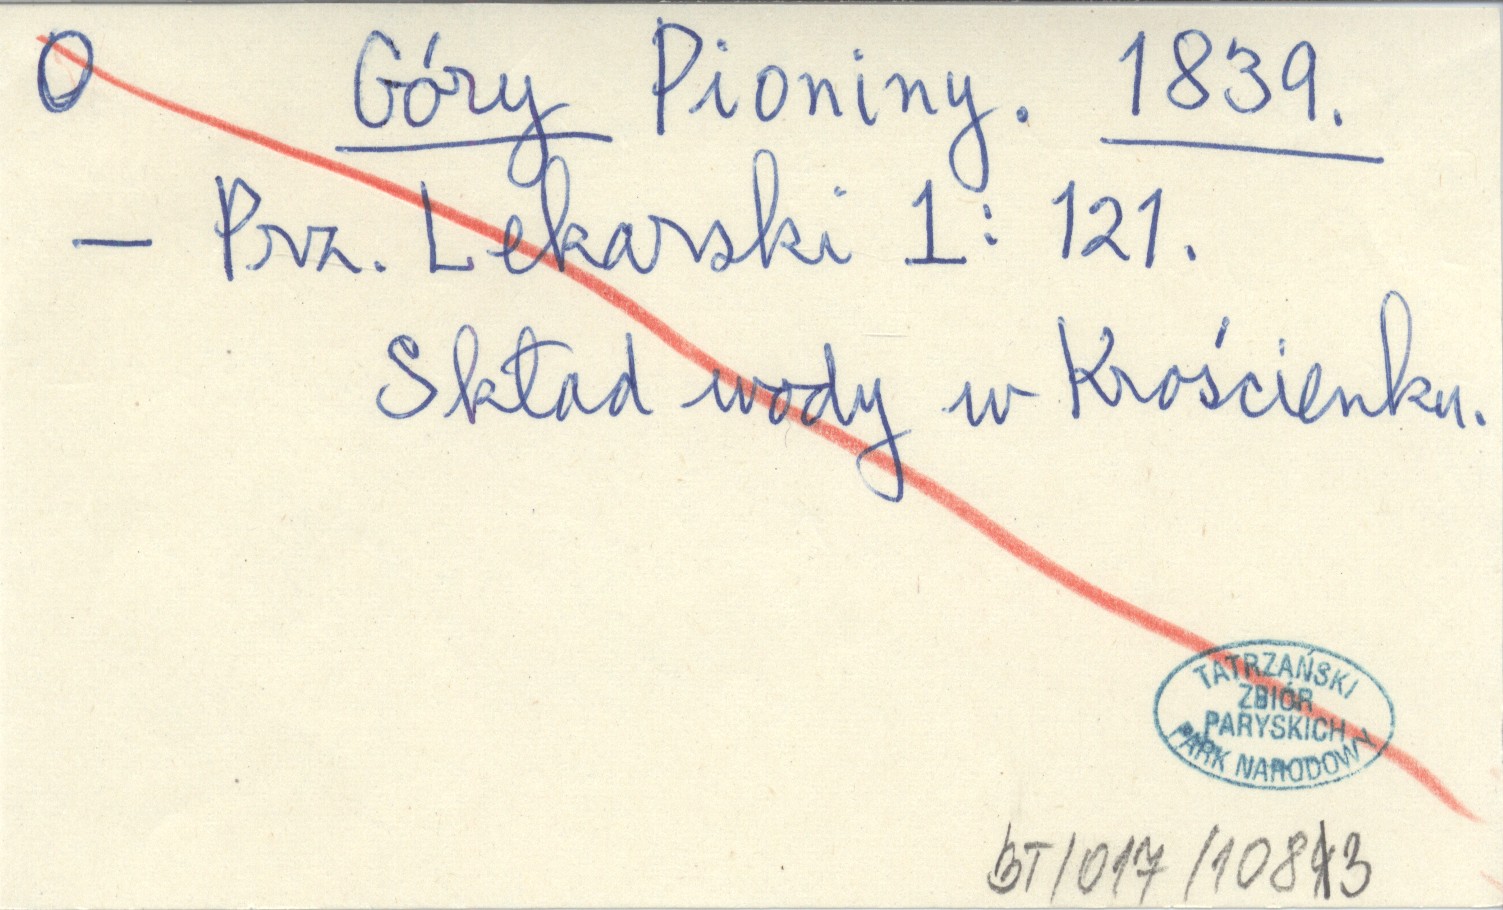 O Góry Pioniny. 1839.
— Prz. Lekarski 1: 121.
Skład wody w Krościenku.
TATRZAŃSKI
ZBIÓR
PARYSKICH
PARK NARODOWY